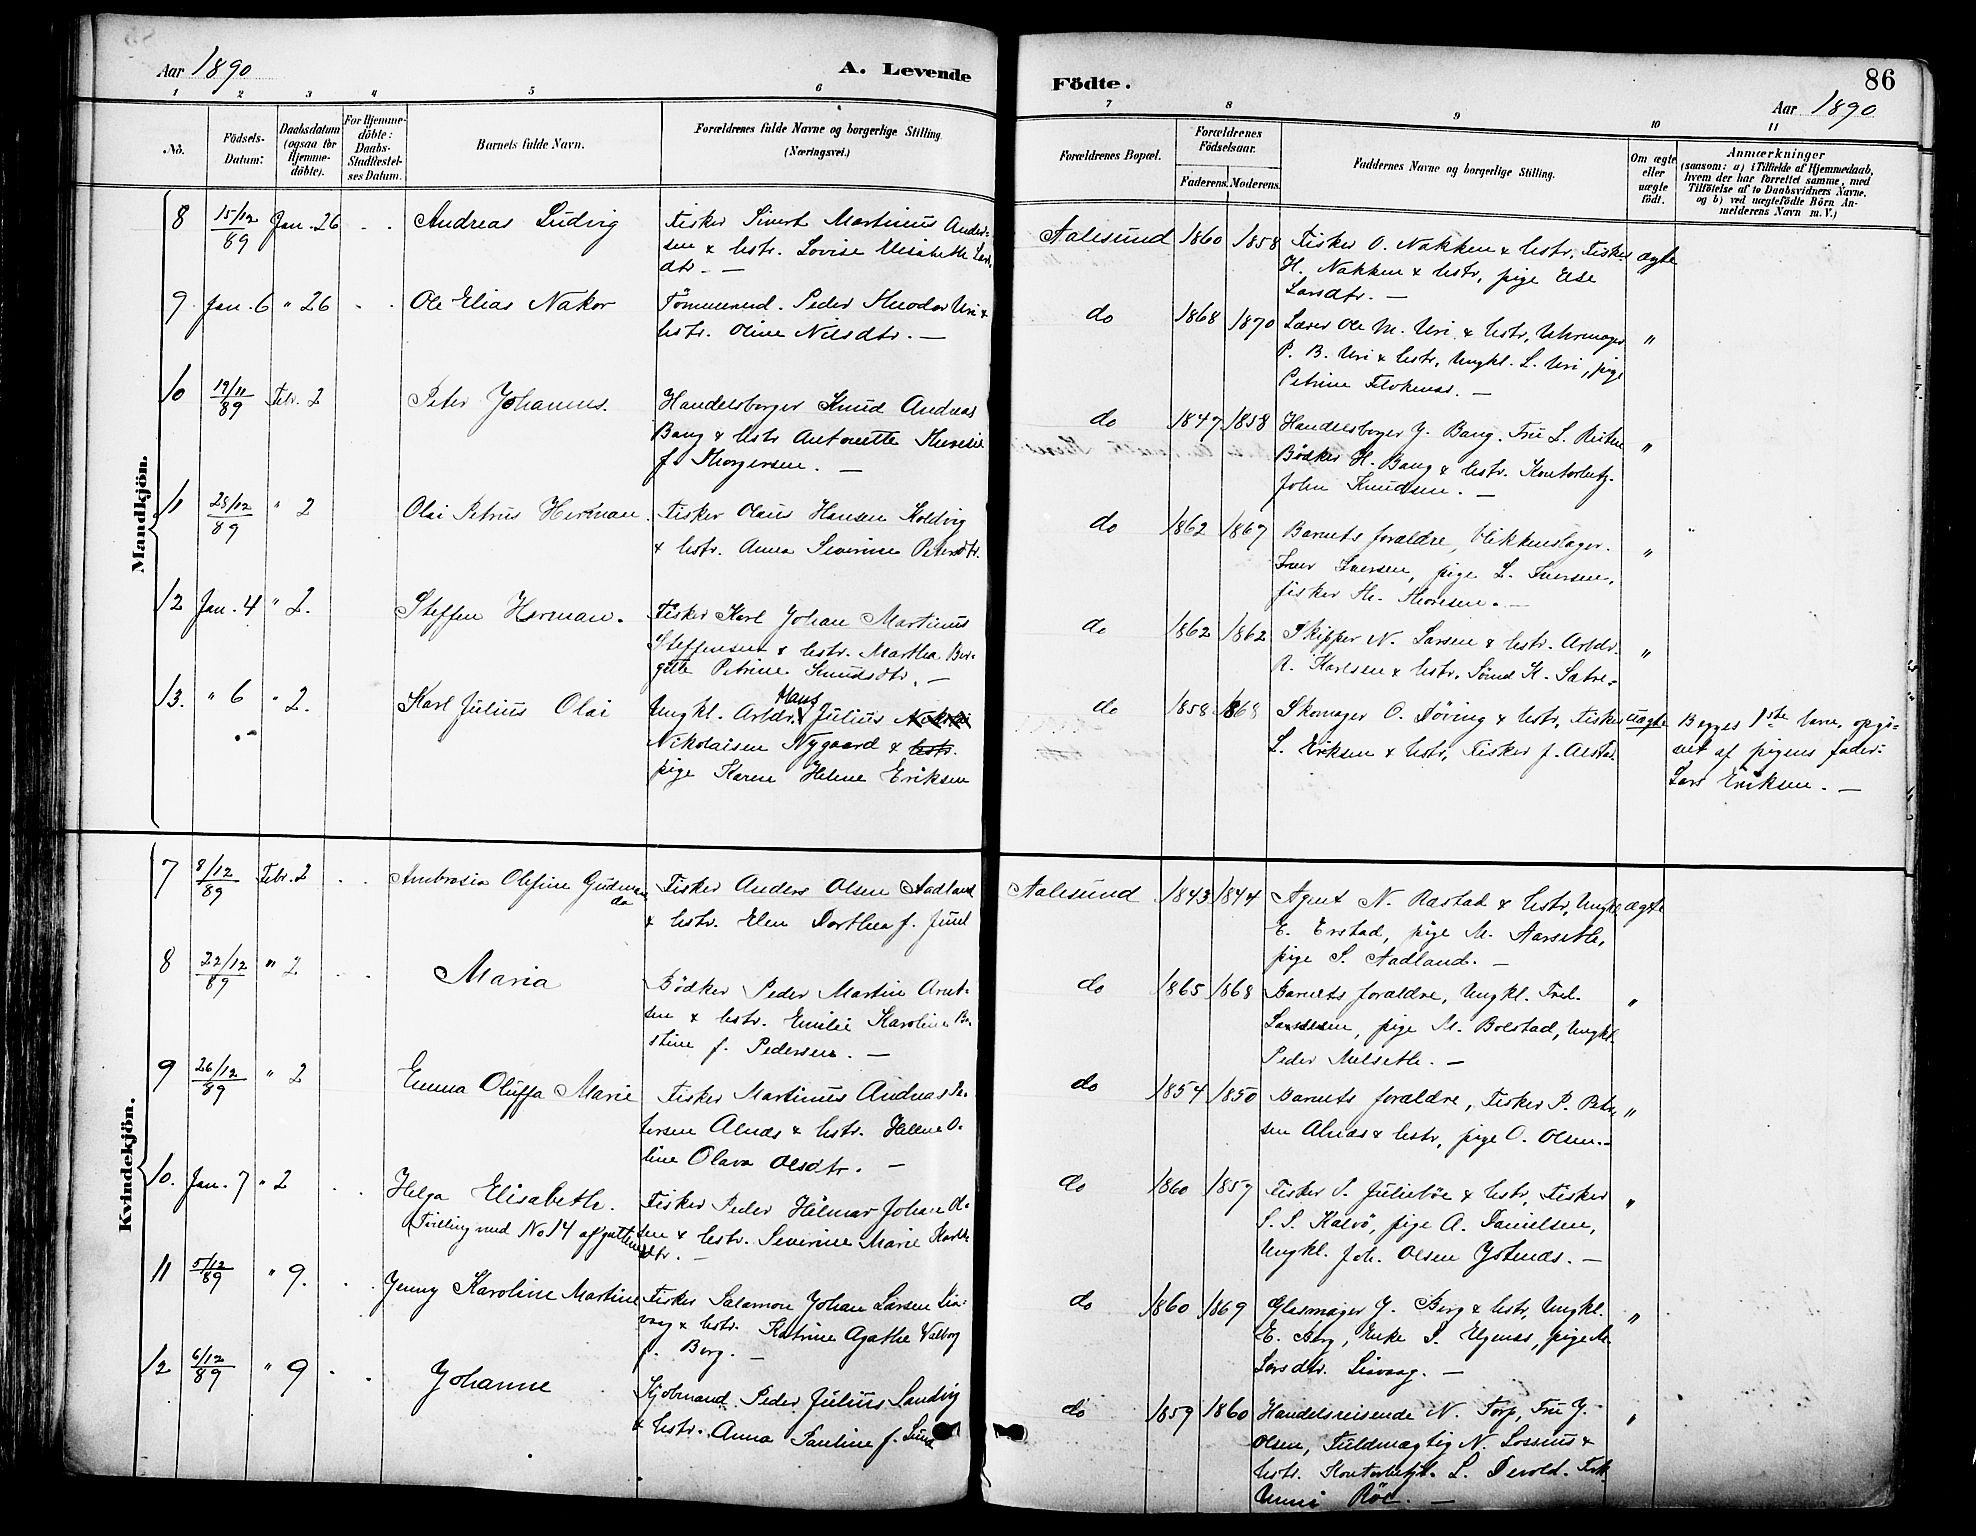 Aar 1890
A. Levende
Födte.
86
Aar 1890
1 2 3 4 5 6 7 8 9 10 11
No.
Födsels-
Datum:
Daabsdatum
(ogsaa for
Hjemme-
döbte).
For Hjemme-
döbte:
Daabs-
Stadfæstel-
ses Datum.
Barnets fulde Navn.
Forældrenes fulde Navne og borgerlige Stilling.
(Næringsvei.)
Forældrenes Bopæl.
Forældrenes
Födselsaar.
Faderens. Moderens.
Faddernes Navne og borgerlige Stilling.
Om ægte
eller
uægte
födt.
Anmærkninger
(saasom: a) i Tilfælde af Hjemmedaab,
hvem der har forrettet samme, med
Tilföielse af to Daabsvidners Navne.
og b) ved uægtefödte Börn An-
melderens Navn m. V.)
Mandkjön.
8 15/12 89 Jan. 26 Andreas Ludvig
Fisker Sivert Martinus Ander-
sen & hstr. Lovise Elisabeth Lars-
dtr. —
Aalesund 1860 1858
Fisker O. Nakken & hstr, Fisker
H. Nakken & hstr, pige Else
Larsdtr. —
ægte
9 Jan. 6 " 26 Ole Elias Nakor
Tömmermd. Peder Theodor Uri &
hstr. Oline Nilsdtr. —
do 1868 1870
Lærer Ole M. Uri & hstr, Uhrmager
P. B. Uri & hstr, Ungkl. L. Uri, pige
Petrine —
"
10 19/11 89 Febr. 2 Peter Johannes.
Handelsborger Knud Andreas
Bang & hstr Antonette
f. Thorgersen. —
do 1847 1858
Handelsborger J. Bang. Fru L.
Bödker H. Bang & hstr. Kontorbetj.
John Knudsen. —
"
11 28/12 89 " 2 Olai Petrus Herman.
Fisker Olaus Hansen Koldvig
& hstr. Anna Severine Petersdtr.
do 1862 1867
Barnets forældre, Blikkenslager.
Iver Iversen, pige L. Iversen,
fisker —
"
12 Jan. 4 " 2. Steffen Herman.
Fisker Karl Johan Martinus
Steffensen & hstr. Martha Ber-
gitte Petrine Knudsdtr. —
do 1862 1862
Skipper N. Larsen & hstr. Arbdr.
A. Karlsen & hstr. K. Sætre.
"
13. " 6 " 2. Karl Julius Olai
Ungkl. Arbdr. Hans Julius
Nikolaisen Nygaard & hstr.
pige Karen Helene Eriksen
do 1858 1868
Skomager O. Döving & hstr, Fisker
L. Eriksen & hstr, Fisker J. Alstad.
uægte
Begges 1ste barn, opgi-
vet af pigens fader:
Lars Eriksen. —
Kvindekjön.
7 8/12 89 Febr. 2 Ambrosia Olefine Gudman-
da
Fisker Anders Olsen Aadland
& hstr. Elen Dorthea f. Juul
Aalesund 1843 1844
Agent N. Rastad & hstr, Ungkl
E. Erstad, pige M. Aarseth,
pige S. Aadland. —
ægte
8 22/12 89 " 2 Maria
Bödker Peder Martin Arnt-
sen & hstr. Emilie Karoline Ba-
stine f. Pedersen. —
do 1865 1868
Barnets forældre, Ungkl. Fred.
Larssen, pige M. Bolstad, Ungkl.
Peder Melseth. —
"
9 26/12 89 " 2 Emma Oluffa Marie
Fisker Martinus Andreas Pe-
tersen Alnæs & hstr. Helene O-
line Olava Olsdtr. —
do 1854 1850
Barnets forældre, Fisker P. Peter-
sen Alnæs & hstr, pige O. Olsen.
"
10. Jan. 7 " 2 Helga Elisabeth.
(Tvilling med No 14 af guttene)
Fisker Peder Hilmar Johan Ol-
sen & hstr. Severine Marie Karls-
dtr. —
do 1860 1857
Fisker S. Juliebøe & hstr, Fisker
S. S. Kalvö, pige A. Danielsen,
Ungkl. Joh. Olsen Ystenæs. —
"
11 5/12 89 " 9. Jenny Karoline Martine
Fisker Salamon Johan Larsen Lia-
vaag & hstr. Katrine Agathe Valborg
f. Berg. —
do 1860 1869
Glasmager J. Berg & hstr, Ungkl.
E. Berg, Enke S. Elgenæs, pige M.
Larsdtr. Liavaag. —
"
12 6/12 89 " 9 Johanne
Kjøbmand Peder Julius Sandvig
& hstr. Anna Pauline f. Lund
do 1859 1860
Handelsreisende N. Torp, Fru J.
Olsen, Fuldmægtig N. Lossius &
hstr. Kontorbetjt. L. Devold. Frk.
Unni Röe. —
"